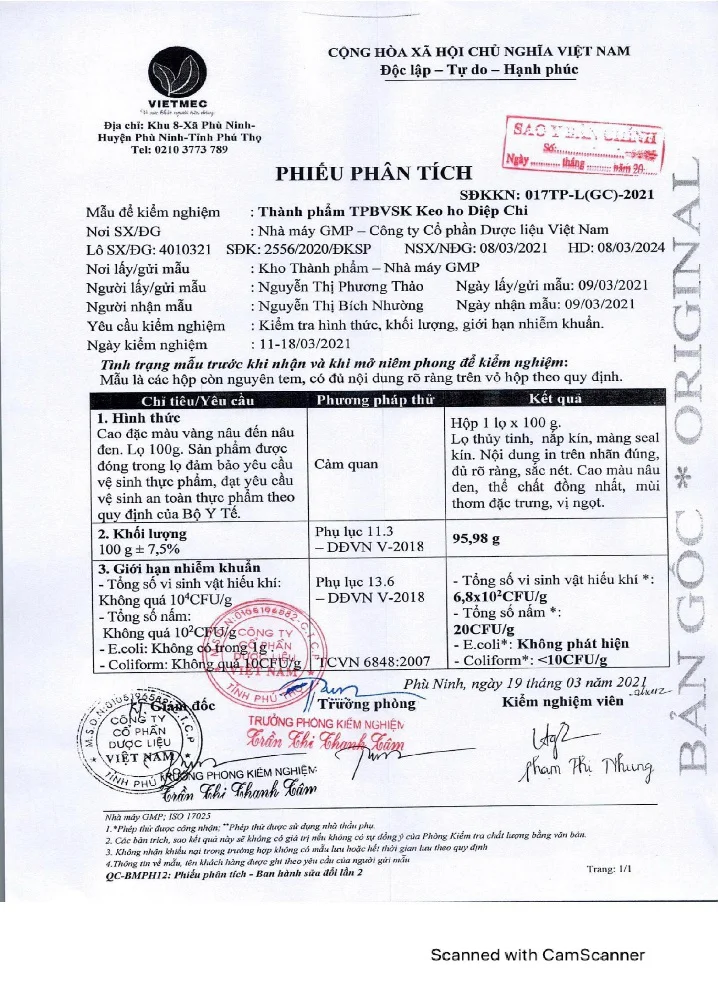 VIETMEC
Địa chỉ: Khu 8-Xã Phù Ninh-
Huyện Phù Ninh-Tỉnh Phú Thọ
Tel: 0210 3773 789
CỘNG HÒA XÃ HỘI CHỦ NGHĨA VIỆT NAM
Độc lập – Tự do – Hạnh phúc
SAO Y BẢN CHÍNH
Số:
Ngày ........... tháng ........... năm 20
PHIẾU PHÂN TÍCH
SĐKKN: 017TP-L(GC)-2021
Mẫu để kiểm nghiệm : Thành phẩm TPBVSK Keo ho Diệp Chi
Nơi SX/ĐG : Nhà máy GMP – Công ty Cổ phần Dược liệu Việt Nam
Lô SX/ĐG: 4010321 SĐK: 2556/2020/ĐKSP NSX/NĐG: 08/03/2021 HD: 08/03/2024
Nơi lấy/gửi mẫu : Kho Thành phẩm – Nhà máy GMP
Người lấy/gửi mẫu : Nguyễn Thị Phương Thảo Ngày lấy/gửi mẫu: 09/03/2021
Người nhận mẫu : Nguyễn Thị Bích Nhường Ngày nhận mẫu: 09/03/2021
Yêu cầu kiểm nghiệm : Kiểm tra hình thức, khối lượng, giới hạn nhiễm khuẩn.
Ngày kiểm nghiệm : 11-18/03/2021
Tình trạng mẫu trước khi nhận và khi mở niêm phong để kiểm nghiệm:
Mẫu là các hộp còn nguyên tem, có đủ nội dung rõ ràng trên vỏ hộp theo quy định.
Chỉ tiêu/Yêu cầu Phương pháp thử Kết quả
1. Hình thức
Cao đặc màu vàng nâu đến nâu
đen. Lọ 100g. Sản phẩm được
đóng trong lọ đảm bảo yêu cầu
vệ sinh thực phẩm, đạt yêu cầu
vệ sinh an toàn thực phẩm theo
quy định của Bộ Y Tế.
Cảm quan
Hộp 1 lọ x 100 g.
Lọ thủy tinh, nắp kín, màng seal
kín. Nội dung in trên nhãn đúng,
đủ rõ ràng, sắc nét. Cao màu nâu
đen, thể chất đồng nhất, mùi
thơm đặc trưng, vị ngọt.
2. Khối lượng
100 g ± 7,5%
Phụ lục 11.3
– DĐVN V-2018
95,98 g
3. Giới hạn nhiễm khuẩn
- Tổng số vi sinh vật hiếu khí:
Không quá 10⁴CFU/g
- Tổng số nấm:
Không quá 10²CFU/g
- E.coli: Không có trong 1g
- Coliform: Không quá 10CFU/g
Phụ lục 13.6
– DĐVN V-2018
TCVN 6848:2007
- Tổng số vi sinh vật hiếu khí *:
6,8x10²CFU/g
- Tổng số nấm *:
20CFU/g
- E.coli*: Không phát hiện
- Coliform*: <10CFU/g
M.S.D.N:0105196582.C.T.C.P
CÔNG TY
CỔ PHẦN
DƯỢC LIỆU
VIỆT NAM
TỈNH PHÚ
Phù Ninh, ngày 19 tháng 03 năm 2021
KT. Giám đốc
Trưởng phòng
Kiểm nghiệm viên
TRƯỞNG PHÒNG KIỂM NGHIỆM
Trần Thị Thanh Tâm
M.S.D.N:0105196582.C.T.C.P
CÔNG TY
CỔ PHẦN
DƯỢC LIỆU
VIỆT NAM
TỈNH PHÚ
TRƯỞNG PHÒNG KIỂM NGHIỆM
Trần Thị Thanh Tâm
Phạm Thị Nhung
BẢN GỐC * ORIGINAL
Nhà máy GMP; ISO 17025
1.*Phép thử được công nhận; **Phép thử được sử dụng nhà thầu phụ.
2. Các bản trích, sao kết quả này sẽ không có giá trị nếu không có sự đồng ý của Phòng Kiểm tra chất lượng bằng văn bản.
3. Không nhận khiếu nại trong trường hợp không có mẫu lưu hoặc hết thời gian lưu theo quy định
4.Thông tin về mẫu, tên khách hàng được ghi theo yêu cầu của người gửi mẫu
QC-BMPH12: Phiếu phân tích - Ban hành sửa đổi lần 2
Trang: 1/1
Scanned with CamScanner